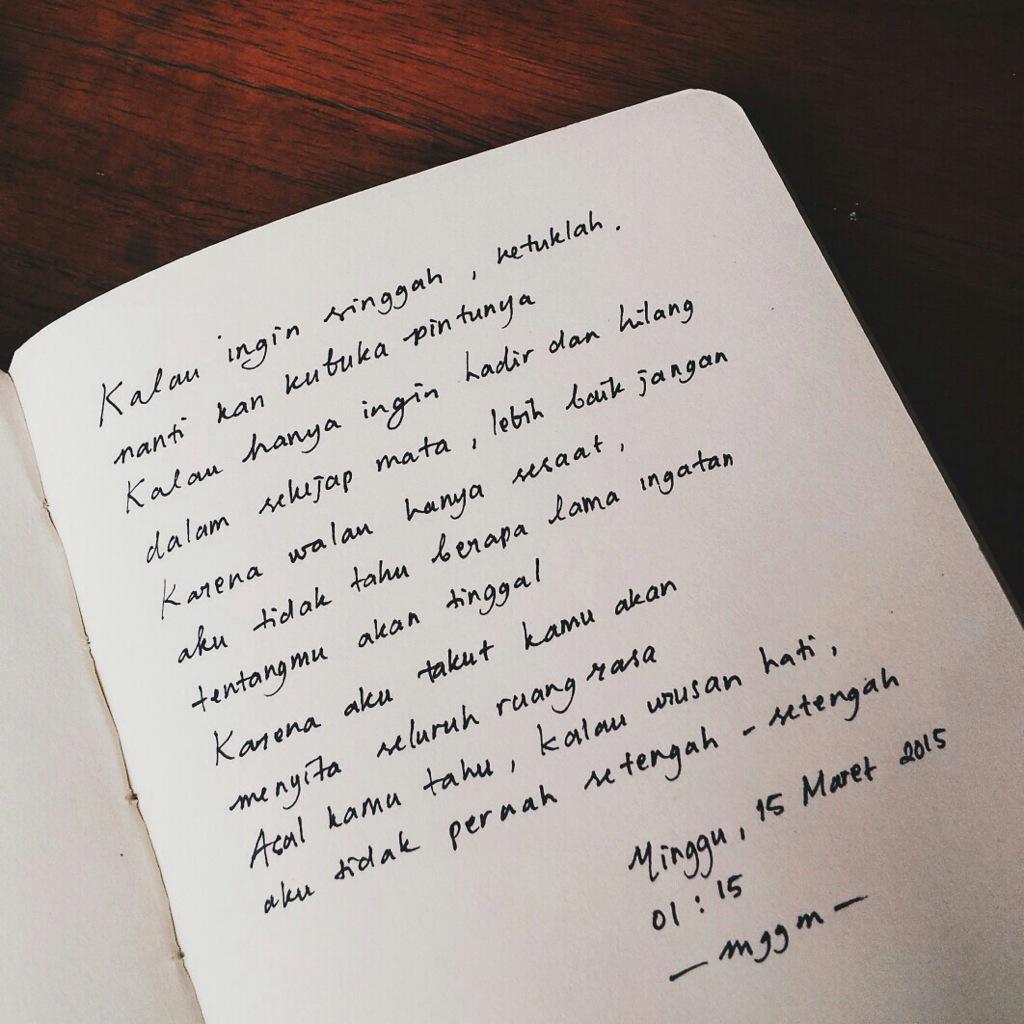 Kalau ingin singgah, ketuklah.
nanti kan kubuka pintunya
Kalau hanya ingin hadir dan hilang
dalam sekejap mata, lebih baik jangan
Karena walau hanya sesaat,
aku tidak tahu berapa lama ingatan
tentangmu akan tinggal
Karena aku takut kamu akan
menyita seluruh ruang rasa
Asal kamu tahu, kalau urusan hati,
aku tidak pernah setengah-setengah
Minggu, 15 Maret 2015
01:15
— mggm —